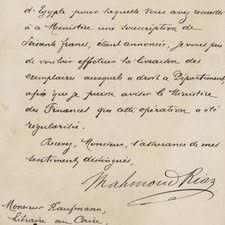 d'Egypte pour laquelle vous avez recueilli
à ce Ministère une souscription de
Soixante francs, étant annoncée, je vous prie
de vouloir effectuer la livraison des
exemplaires auxquels a droit ce Département
afin que je puisse aviser le Ministère
des Finances que cette opération a été
régularisée.
Recevez, Monsieur, l'assurance de mes
sentiments distingués,
Mahmoud Riaz
Monsieur Kaufmann,
Libraire au Caire